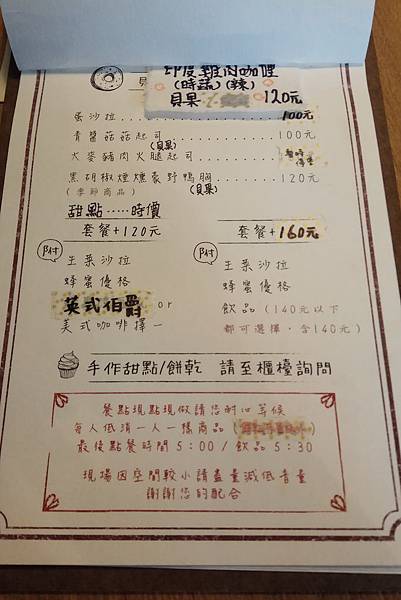 印度雞肉咖哩
(時蔬)(辣)
貝果 120元
蛋沙拉.................100元
青醬菇菇起司.........100元
(貝果)
大麥豬肉火腿起司......暫時停售
黑胡椒煙燻豪野鴨胸.....120元
(季節商品) (貝果)
甜點.....時價
套餐+120元
附
生菜沙拉
蜂蜜優格
英式伯爵 or
美式咖啡擇一
套餐+160元
附
生菜沙拉
蜂蜜優格
飲品(140元以下
都可選擇.含140元)
手作甜點/餅乾 請至櫃檯詢問
餐點現點現做請您耐心等候
每人低消一人一樣商品
最後點餐時間 5:00 / 飲品 5:30
現場因空間較小請盡量減低音量
謝謝您的配合